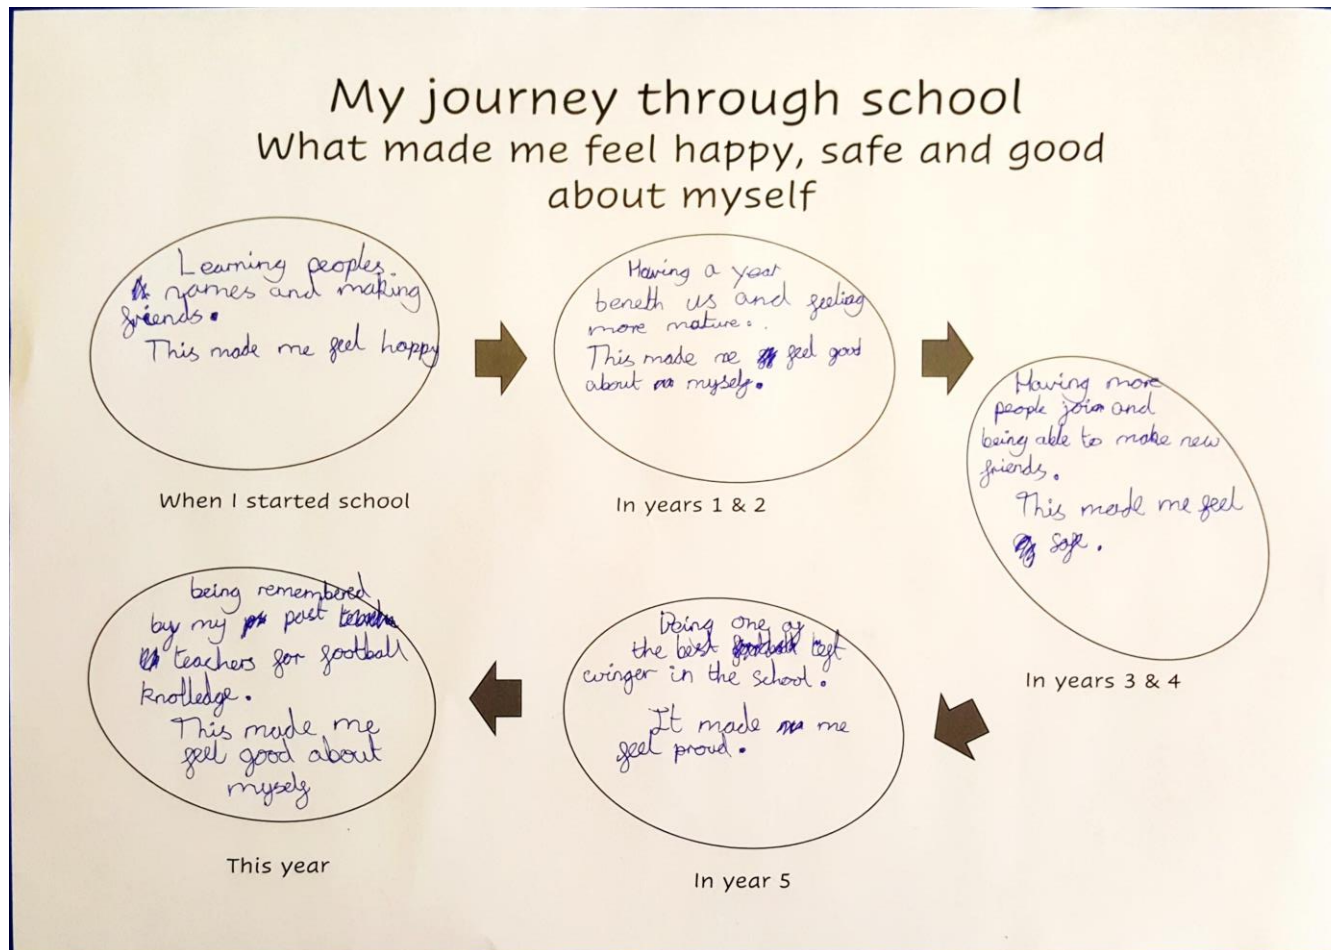 My journey through school
What made me feel happy, safe and good
about myself
Learning peoples
names and making
friends.
This made me feel happy
When I started school
Having a year
beneth us and feeling
more mature.
This made me feel good
about myself.
In years 1 & 2
Having more
people join and
being able to make new
friends.
This made me feel
safe.
In years 3 & 4
Being one of
the best left
winger in the school.
It made me
feel proud.
In year 5
being remembered
by my past
teachers for football
knolledge.
This made me
feel good about
myself
This year